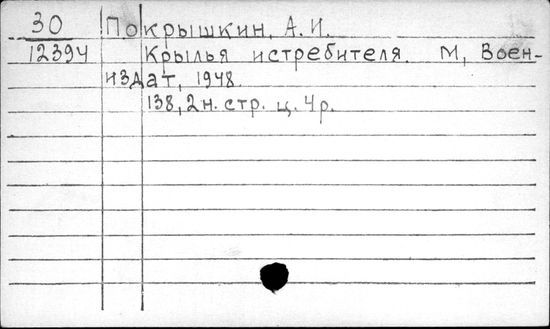 30 Покрышкин. А. И.
12394 Крылья истребителя. М, Воен-
издат, 1948.
138, 2 н. стр. ц. 4 р.